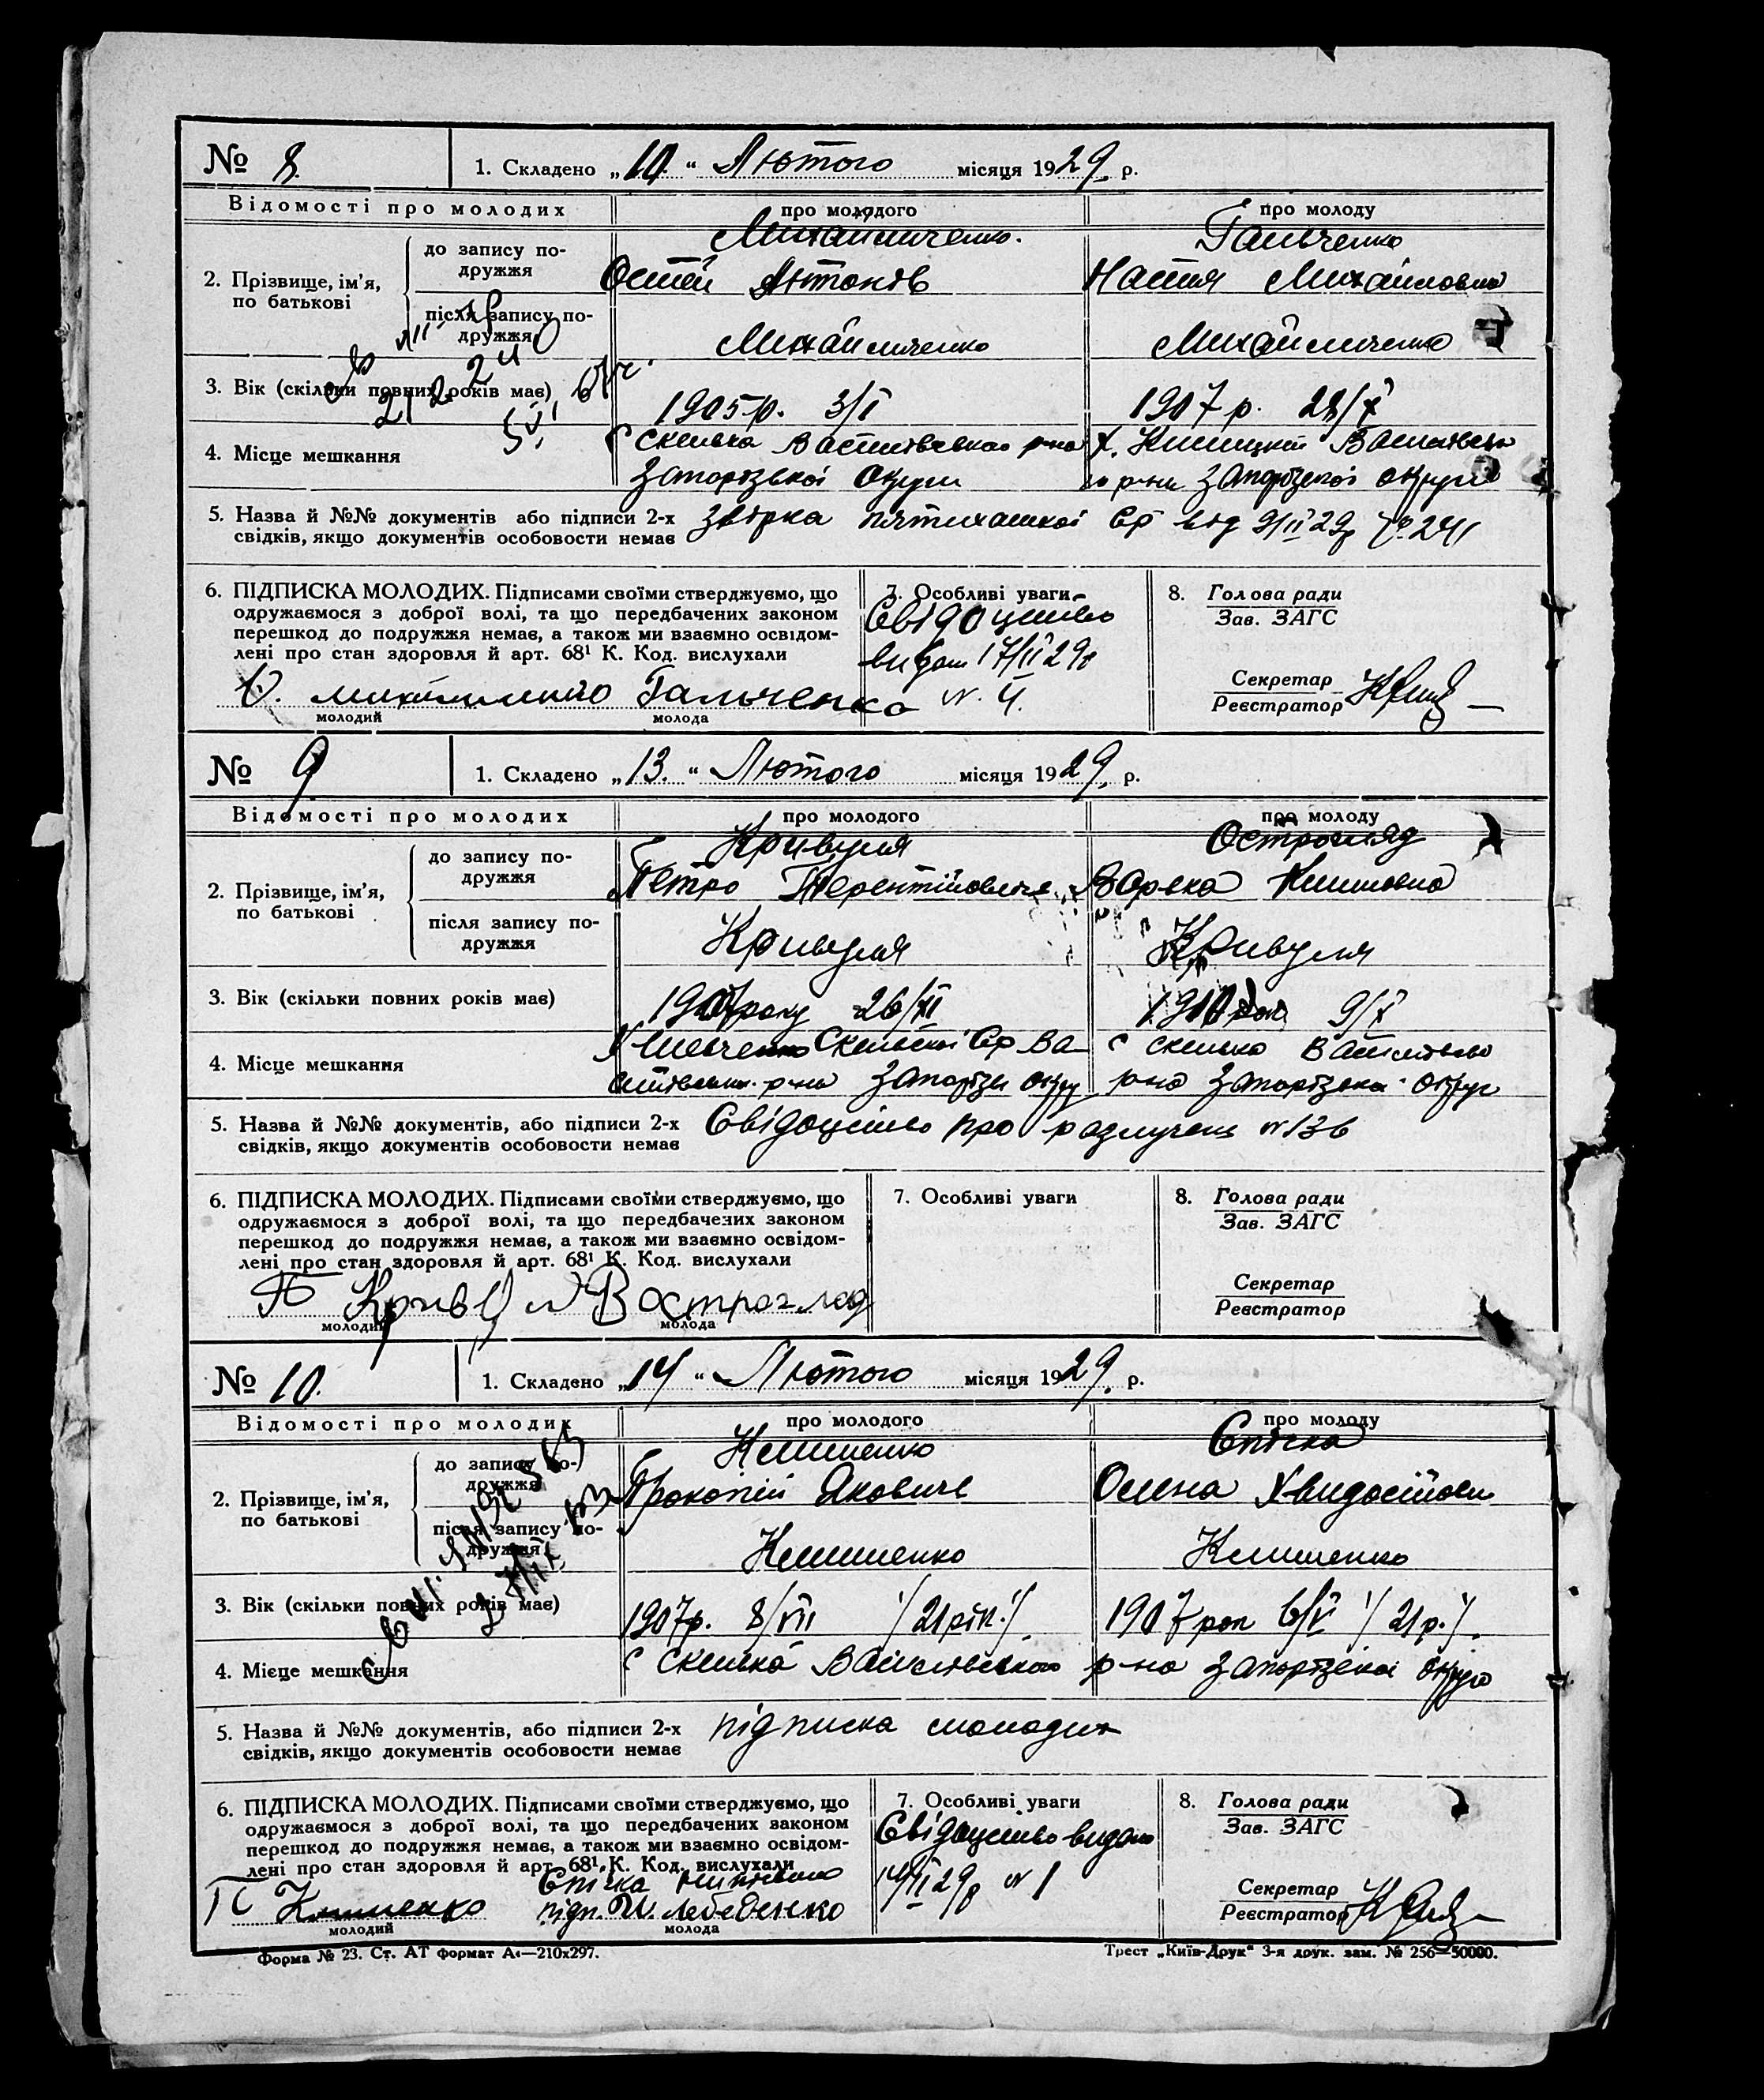 № 8. 1. Складено „10.“ Лютого місяця 1929. р.
Відомості про молодих про молодого про молоду
Михайличенко. Гальченко
2. Прізвище, ім'я, по батькові
до запису подружжя
Остап Антонів Настя Михайловна
після запису подружжя
Михайличенко Михайличенко
3. Вік (скільки повних років має)
1905 р. 3/I 1907 р. 28/X
4. Місце мешкання
с Скелька Василівсько р-на х.
Запорізької Округи р-на Запорізької округи
5. Назва й №№ документів або підписи 2-х
свідків, якщо документів особовости немає
звірка від 9/II 29р № 241
6. ПІДПИСКА МОЛОДИХ. Підписами своїми стверджуємо, що
одружаємося з доброї волі, та що передбачених законом
перешкод до подружжя немає, а також ми взаємно освідом-
лені про стан здоровля й арт. 68¹ К. Код. вислухали
Гальченко
молодий молода
7. Особливі уваги
Свідоцтво
видан 17/II 29р
N. 4.
8. Голова ради
Зав. ЗАГС
Секретар
Реєстратор
№ 9 1. Складено „13.“ Лютого місяця 1929. р.
Відомості про молодих про молодого про молоду
Кривуля Острогляд
2. Прізвище, ім'я, по батькові
до запису подружжя
Петро Терентійович Варька
після запису подружжя
Кривуля Кривуля
3. Вік (скільки повних років має)
1907 року 26/XII 1910 рок 9/X
4. Місце мешкання
Скельської Ср Ва- с Скелька
р-на Запорізьк округ р-на Запорізька округ
5. Назва й №№ документів, або підписи 2-х
свідків, якщо документів особовости немає
Свідоцтво про разлучення N 136
6. ПІДПИСКА МОЛОДИХ. Підписами своїми стверджуємо, що
одружаємося з доброї волі, та що передбачених законом
перешкод до подружжя немає, а також ми взаємно освідом-
лені про стан здоровля й арт. 68¹ К. Код. вислухали
П Кривуля В Острогляд
молодий молода
7. Особливі уваги
8. Голова ради
Зав. ЗАГС
Секретар
Реєстратор
№ 10. 1. Складено „14“ Лютого місяця 1929. р.
Відомості про молодих про молодого про молоду
Клименко Спічка
2. Прізвище, ім'я, по батькові
до запису подружжя
Прокопій Якович Олена
після запису подружжя
Клименко Клименко
3. Вік (скільки повних років має)
1907р. 8/VII /21 рік/. 1907 рок 6/V /21 р./.
4. Місце мешкання
с Скелька Василівського р-на Запорізької округи
5. Назва й №№ документів, або підписи 2-х
свідків, якщо документів особовости немає
підписка молодих
6. ПІДПИСКА МОЛОДИХ. Підписами своїми стверджуємо, що
одружаємося з доброї волі, та що передбачених законом
перешкод до подружжя немає, а також ми взаємно освідом-
лені про стан здоровля й арт. 68¹ К. Код. вислухали
Спічка
П Клименко підп. Лебеденко
молодий молода
7. Особливі уваги
Свідоцтво видано
14/II 29р N 1
8. Голова ради
Зав. ЗАГС
Секретар
Реєстратор
Форма № 23. Ст. АТ формат А₄—210х297.
Трест „Київ-Друк“ 3-я друк. зам. № 256—50000.